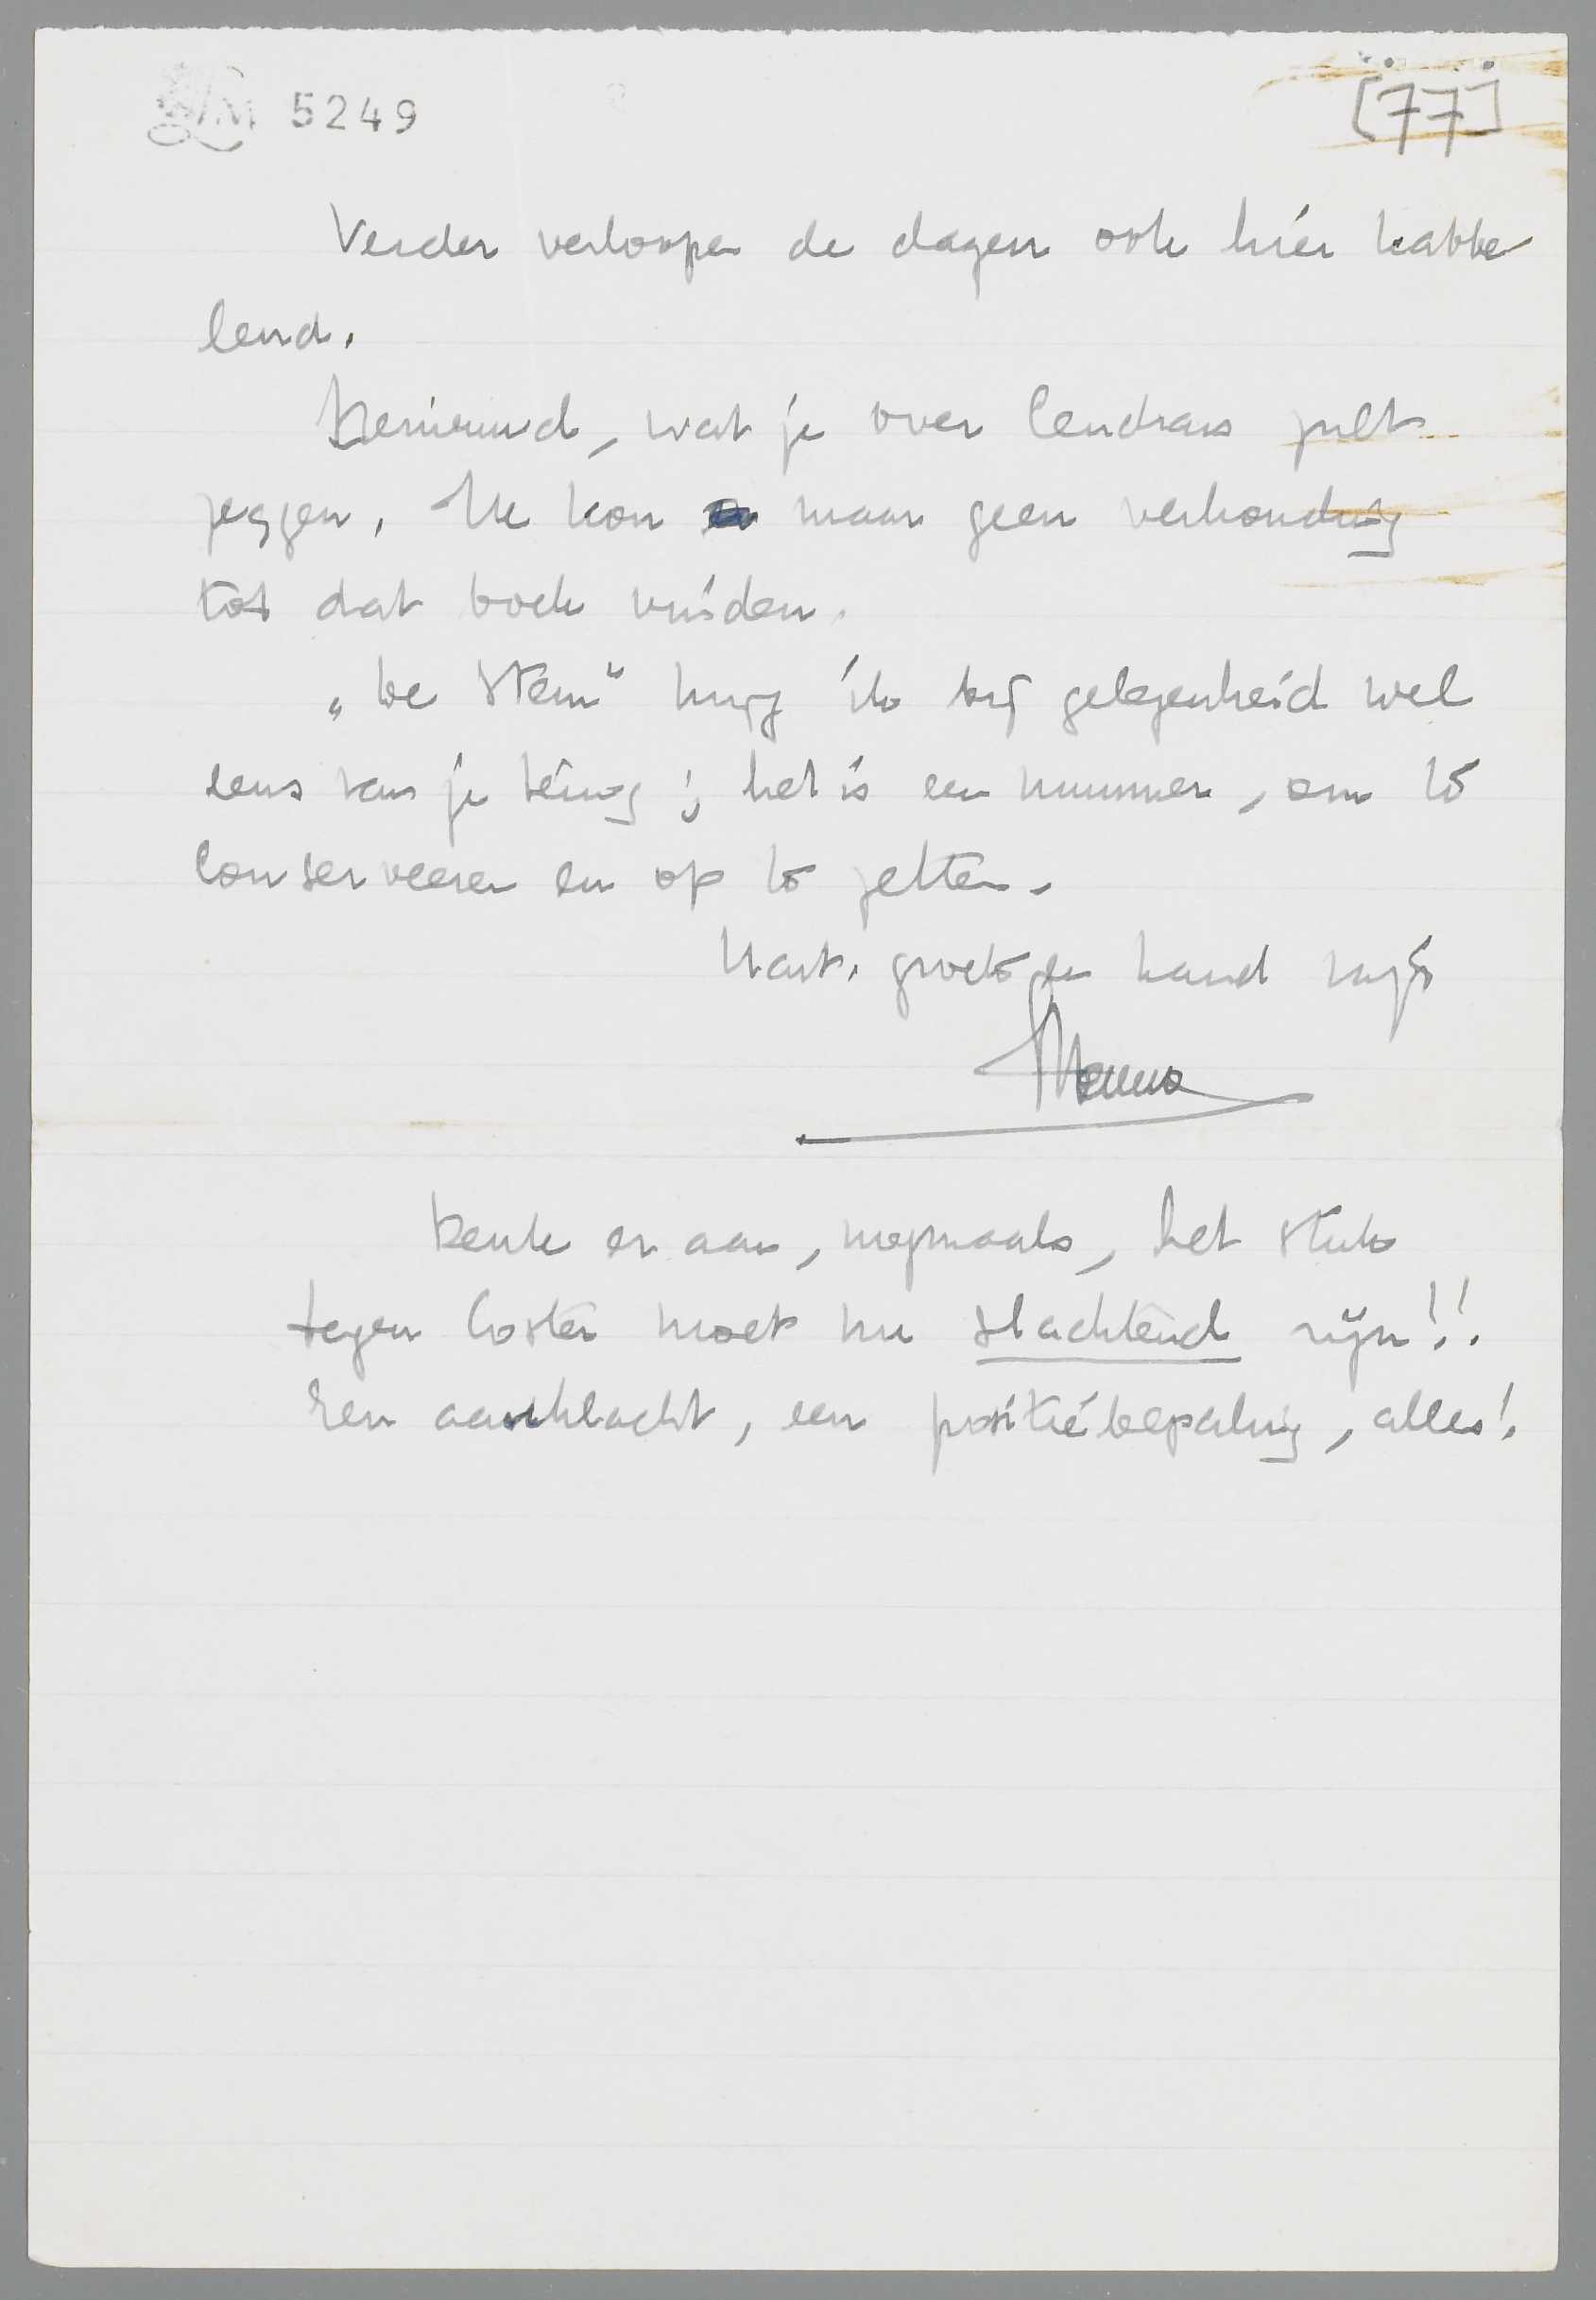 LM 5249
[77]
Verder verloopen de dagen ook hier kabbe
lend.
Benieuwd, wat je over Cendrars zult
zeggen. Ik kon maar geen verhouding
tot dat boek vinden.
„De Stem" krijg ik bij gelegenheid wel
eens van je terug; het is een nummer, om te
conserveeren en op te zetten.
Hart. groeten hand v. jе
Menno
Denk er aan, nogmaals, het stuk
tegen Coster moet nu slachtend zijn!!
Een aanklacht, een positiebepaling, alles!